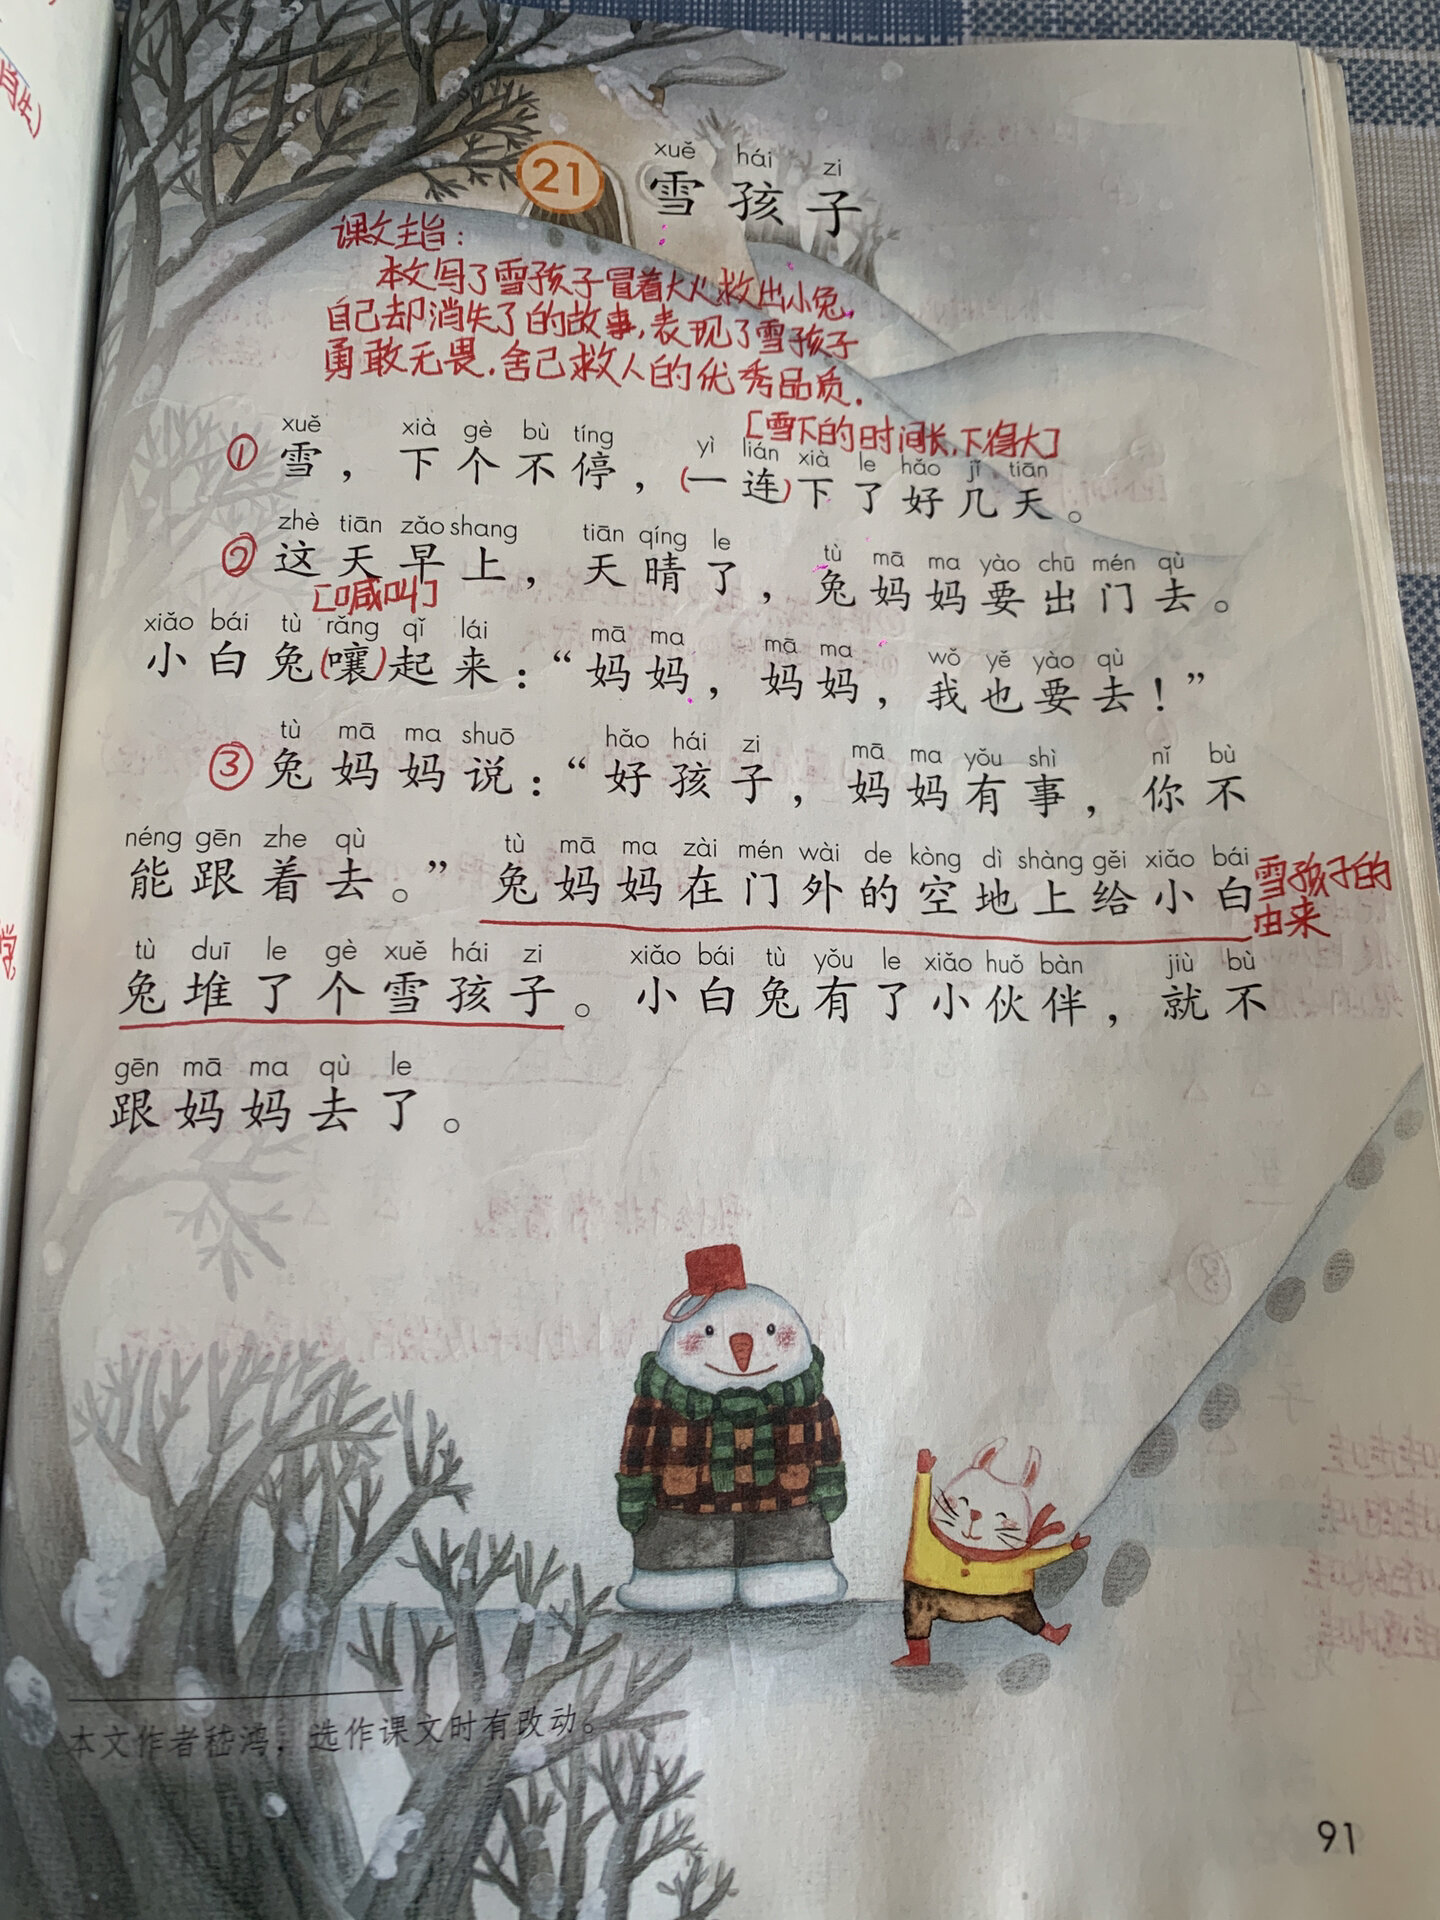 21
xuě hái zi
雪孩子
课文主旨：
本文写了雪孩子冒着大火救出小兔，
自己却消失了的故事，表现了雪孩子
勇敢无畏、舍己救人的优秀品质。
[雪下的时间长，下得大]
xuě xià gè bù tíng yì lián xià le hǎo jǐ tiān
① 雪，下个不停，(一连)下了好几天。
zhè tiān zǎo shang tiān qíng le tù mā ma yào chū mén qù
② 这天早上，天晴了，兔妈妈要出门去。
[喊叫]
xiǎo bái tù rǎng qǐ lái mā ma mā ma wǒ yě yào qù
小白兔(嚷)起来：“妈妈，妈妈，我也要去！”
tù mā ma shuō hǎo hái zi mā ma yǒu shì nǐ bù
③ 兔妈妈说：“好孩子，妈妈有事，你不
néng gēn zhe qù tù mā ma zài mén wài de kòng dì shàng gěi xiǎo bái
能跟着去。”兔妈妈在门外的空地上给小白
雪孩子的
由来
tù duī le gè xuě hái zi xiǎo bái tù yǒu le xiǎo huǒ bàn jiù bù
兔堆了个雪孩子。小白兔有了小伙伴，就不
gēn mā ma qù le
跟妈妈去了。
本文作者嵇鸿，选作课文时有改动。
91